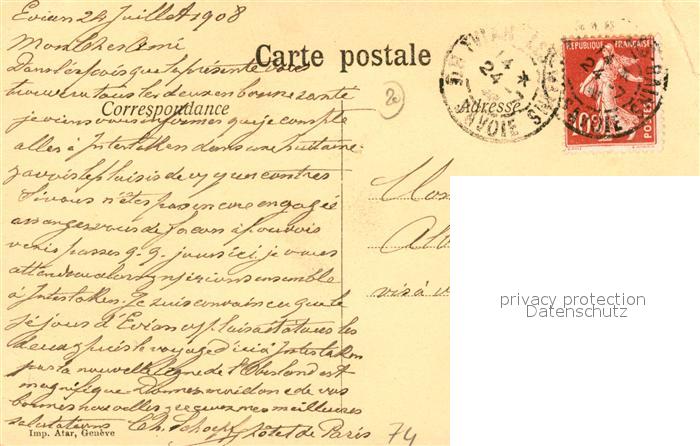 Evian 24 Juillet 1908
Mon cher ami
Carte postale
Dans l'espoir que la présente vous
trouvera tous les deux en bonne santé
Correspondance
je viens vous informer que je compte
aller à Interlaken dans une huitaine
j'aurais le plaisir de vous y rencontrer
Si vous n'êtes pas encore engagé
arrangez vous de façon à pouvoir
venir passer q.q. jours ici. je vous
attendrai alors, nous irions ensemble
à Interlaken. Je suis convaincu que le
séjour d'Evian vs plaira à tous les
deux, puis le voyage d'ici à Interlaken
par la nouvelle ligne de l'Oberland est
magnifique Donnez-moi donc de vos
bonnes nouvelles, recevez mes meilleures
salutations Ch. Schoepf Hôtel de Paris
Imp. Atar, Genève
74
2
Adresse
ENVOIE
RÉPUBLIQUE FRANÇAISE
10c
POSTES
Mon
vis à v
privacy protection
Datenschutz